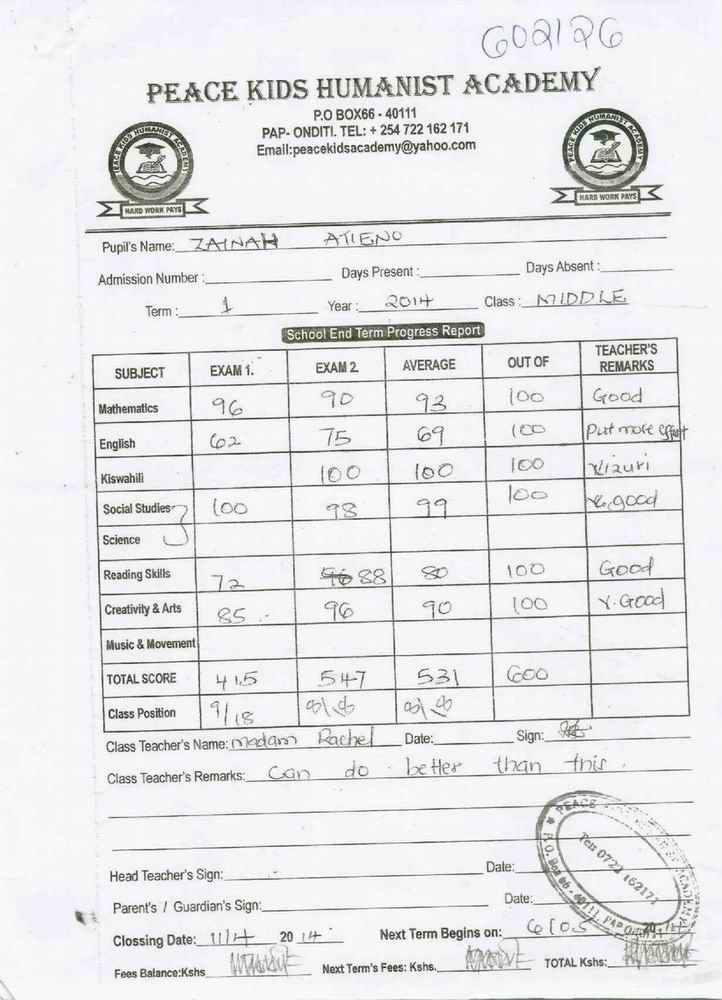 602126
PEACE KIDS HUMANIST ACADEMY
P.O BOX66 - 40111
PAP- ONDITI. TEL: + 254 722 162 171
Email:peacekidsacademy@yahoo.com
PEACE KIDS HUMANIST ACADEMY
HARD WORK PAYS
PEACE KIDS HUMANIST ACADEMY
HARD WORK PAYS
Pupil's Name: ZAINAH ATIENO
Admission Number : Days Present : Days Absent :
Term : 1 Year : 2014 Class : MIDDLE
School End Term Progress Report
SUBJECT EXAM 1. EXAM 2. AVERAGE OUT OF TEACHER'S REMARKS
Mathematics 96 90 93 100 Good
English 62 75 69 100 Put more effort
Kiswahili 100 100 100 Vizuri
Social Studies 100 98 99 100 V. good
Science
Reading Skills 72 88 80 100 Good
Creativity & Arts 85 96 90 100 V. Good
Music & Movement
TOTAL SCORE 415 547 531 600
Class Position 9/18
Class Teacher's Name: Madam Rachel Date: Sign:
Class Teacher's Remarks: Can do better than this.
Head Teacher's Sign: Date:
Parent's / Guardian's Sign: Date:
PEACE
Tel: 0722 162171
P.O. Box 66 - 40111, PAP
Clossing Date: 11/4 20 14 Next Term Begins on: 6/05 2014
Fees Balance:Kshs Next Term's Fees: Kshs. TOTAL Kshs: